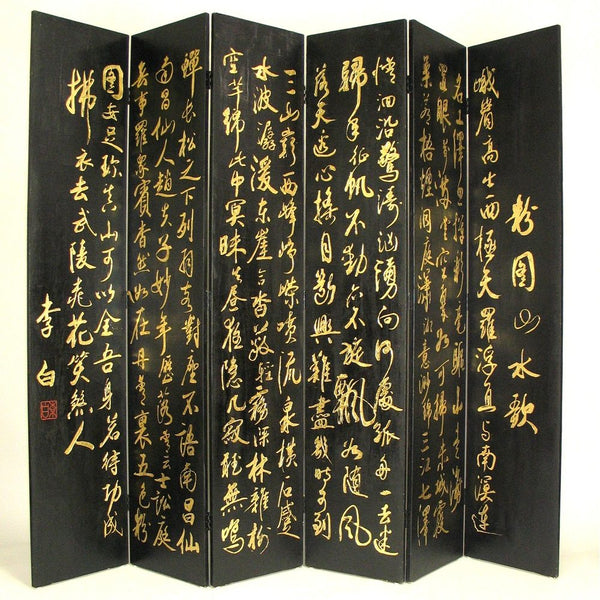 粉圖山水歌
峨眉高出西極天羅浮直与南溟連
名工繹思揮彩筆驅山走海
置眼前滿堂空翠如可掃赤城霞
氣蒼梧煙洞庭瀟湘意渺綿三江七澤
情洄沿驚濤洶湧向何處孤舟一去迷
歸年征帆不動亦不旋飄如隨風
落天邊心搖目斷興難盡幾時可到
三山巔西峰崢嶸噴流泉橫石蹙
水波潺湲東崖合沓蔽輕霧深林雜樹
空芊綿此中冥昧失晝夜隱几寂聽無鳴
蟬長松之下列羽客對座不語南昌仙
南昌仙人趙夫子妙年歷落青雲士訟庭
無事羅眾賓杳然如在丹青裏五色粉
圖安足珍真山可以全吾身若待功成
拂衣去武陵桃花笑殺人
李白